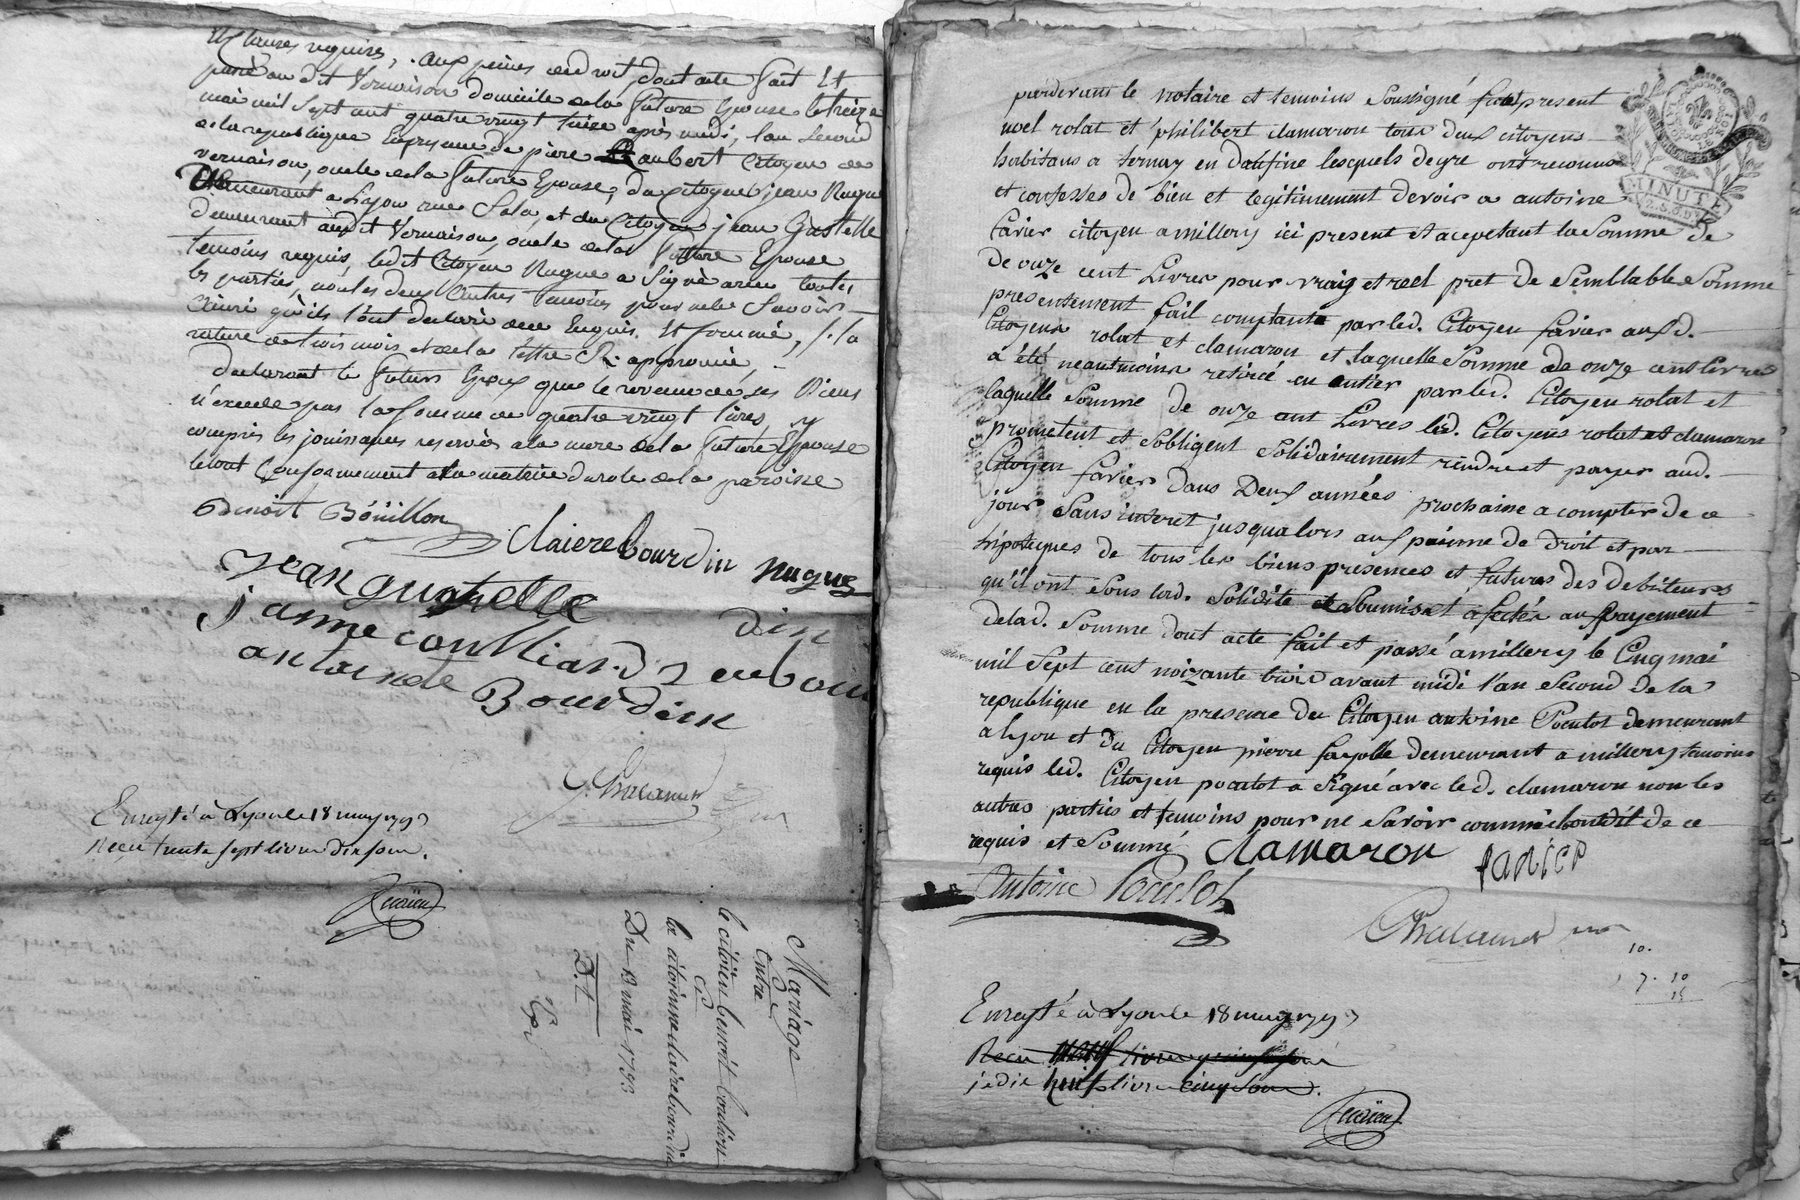 Clauses requises, aux peines de droit, dont acte fait et
passé au dit Vernaison domicile de la future Epouse le treize
mai mil sept cent quatre vingt treize après midi, l'an second
de la republique En presence de pierre aubert Citoyen de
vernaison, oncle de la future Epouse, du Citoyen jean Nugue
demeurant a Lyon rue Sala, et du Citoyen jean Gastelle
demeurant audit Vernaison, oncle de la future Epouse
temoins requis, ledit Citoyen Nugue a Signé avec toutes
les parties, non les deux autres temoins pour ne le Savoir
ainsi qu'ils l'ont declaré de ce Enquis et sommé, /. la
rature de trois mots et de la lettre approuvée,
declarant le futurs Epoux que le revenu de ses Biens
n'excede pas la somme de quatre vingt livres, y
compris les jouissances reservés a la mere de la future Epouse
le tout Conformement a la matrice du role de la paroisse
Benoit Bouillon
Claiere bourdin nugue
Jean guatelle
janne coulliard
antoinele Bourdin
Chalamet
Enregté à Lyon le 18 may 1793
Reçu trente sept livres dix sous.
Mariage
Entre
le citoïen benoit boulion
et
la citoienne claire bourdin
Du 13 mai 1793
pardevant le notaire et temoins Soussigné fut present
noel rolat et philibert clamaron tous deux citoyens
habitans a ternay en daufine lesquels de gre ont reconnus
et confesses de bien et legitimement devoir a antoine
favier citoyen a millery ici present et aceptant la Somme de
De onze cent Livres pour vraig et reel pret de Semblable Somme
presentement fait comptant par led. Citoyen favier aux d.
Citoyens rolat et clamaron et laquelle Somme de onze cent livres
a été neantmoins retirée en entier par led. Citoyen rolat et
laquelle Somme de onze cent Livres led. Citoyens rolat et clamaron
prometent et sobligent Solidairement rendre et payer aud.
Citoyen favier dans Deux années prochaine a compter de ce
jour Sans interet jusqualors aux peinne de droit et par
hipoteques de tous les biens presences et futures des debiteurs
qu'il ont Sous lad. Solidité et affectés au payement
delad. Somme dont acte fait et passé a millery le Cinq mai
mil Sept cent noizante trois avant midi l'an Second de la
republique en la presence du Citoyen antoine Poculot demeurant
a lyon et du Citoyen pierre fayolle demeurant a millery temoins
requis led. Citoyen poculot a Signé avec led. clamaron non les
autres parties et temoins pour ne Savoir de ce
requis et Sommé
Clamaron
favier
Antoine Poculot
Chalamet
10.
7. 10
MINUTE
Enregté à Lyon le 18 may 1793
je dis huit livres cinq sous.